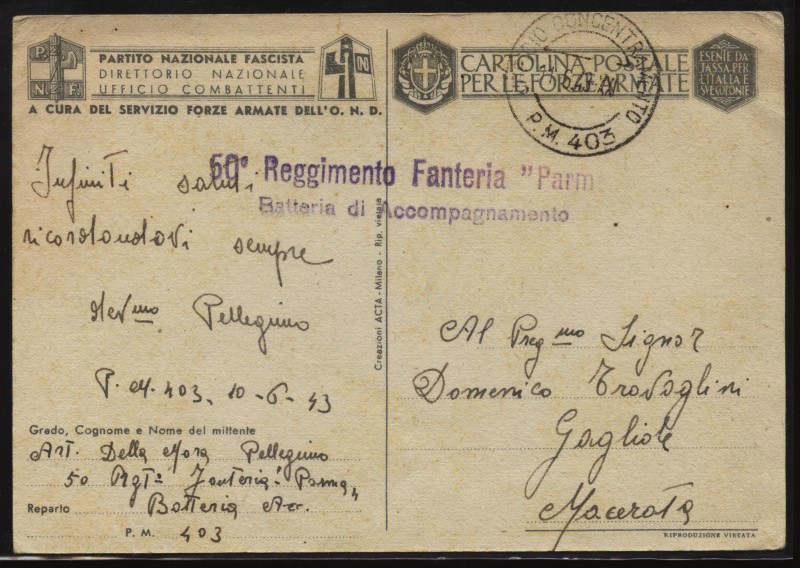 P. N.
N. F.
PARTITO NAZIONALE FASCISTA
DIRETTORIO NAZIONALE
UFFICIO COMBATTENTI
A CURA DEL SERVIZIO FORZE ARMATE DELL'O. N. D.
CARTOLINA POSTALE
PER LE FORZE ARMATE
ESENTE DA
TASSA PER
L'ITALIA E
SUE COLONIE
CONCENTRAMENTO
P.M. 403
50° Reggimento Fanteria "Parm
Batteria di Accompagnamento
Infiniti saluti
ricordandovi sempre
dev mo Pellegrino
P. M. 403. 10-6-43
Grado, Cognome e Nome del mittente
Art. Della Mora Pellegrino
50 Rgt° Fanteria "Parma"
Reparto Batteria Acc.
P. M. 403
Creazioni ACTA - Milano - Rip. vietata
Al Preg mo Signor
Domenico Travaglini
Gagliole
Macerata
RIPRODUZIONE VIETATA